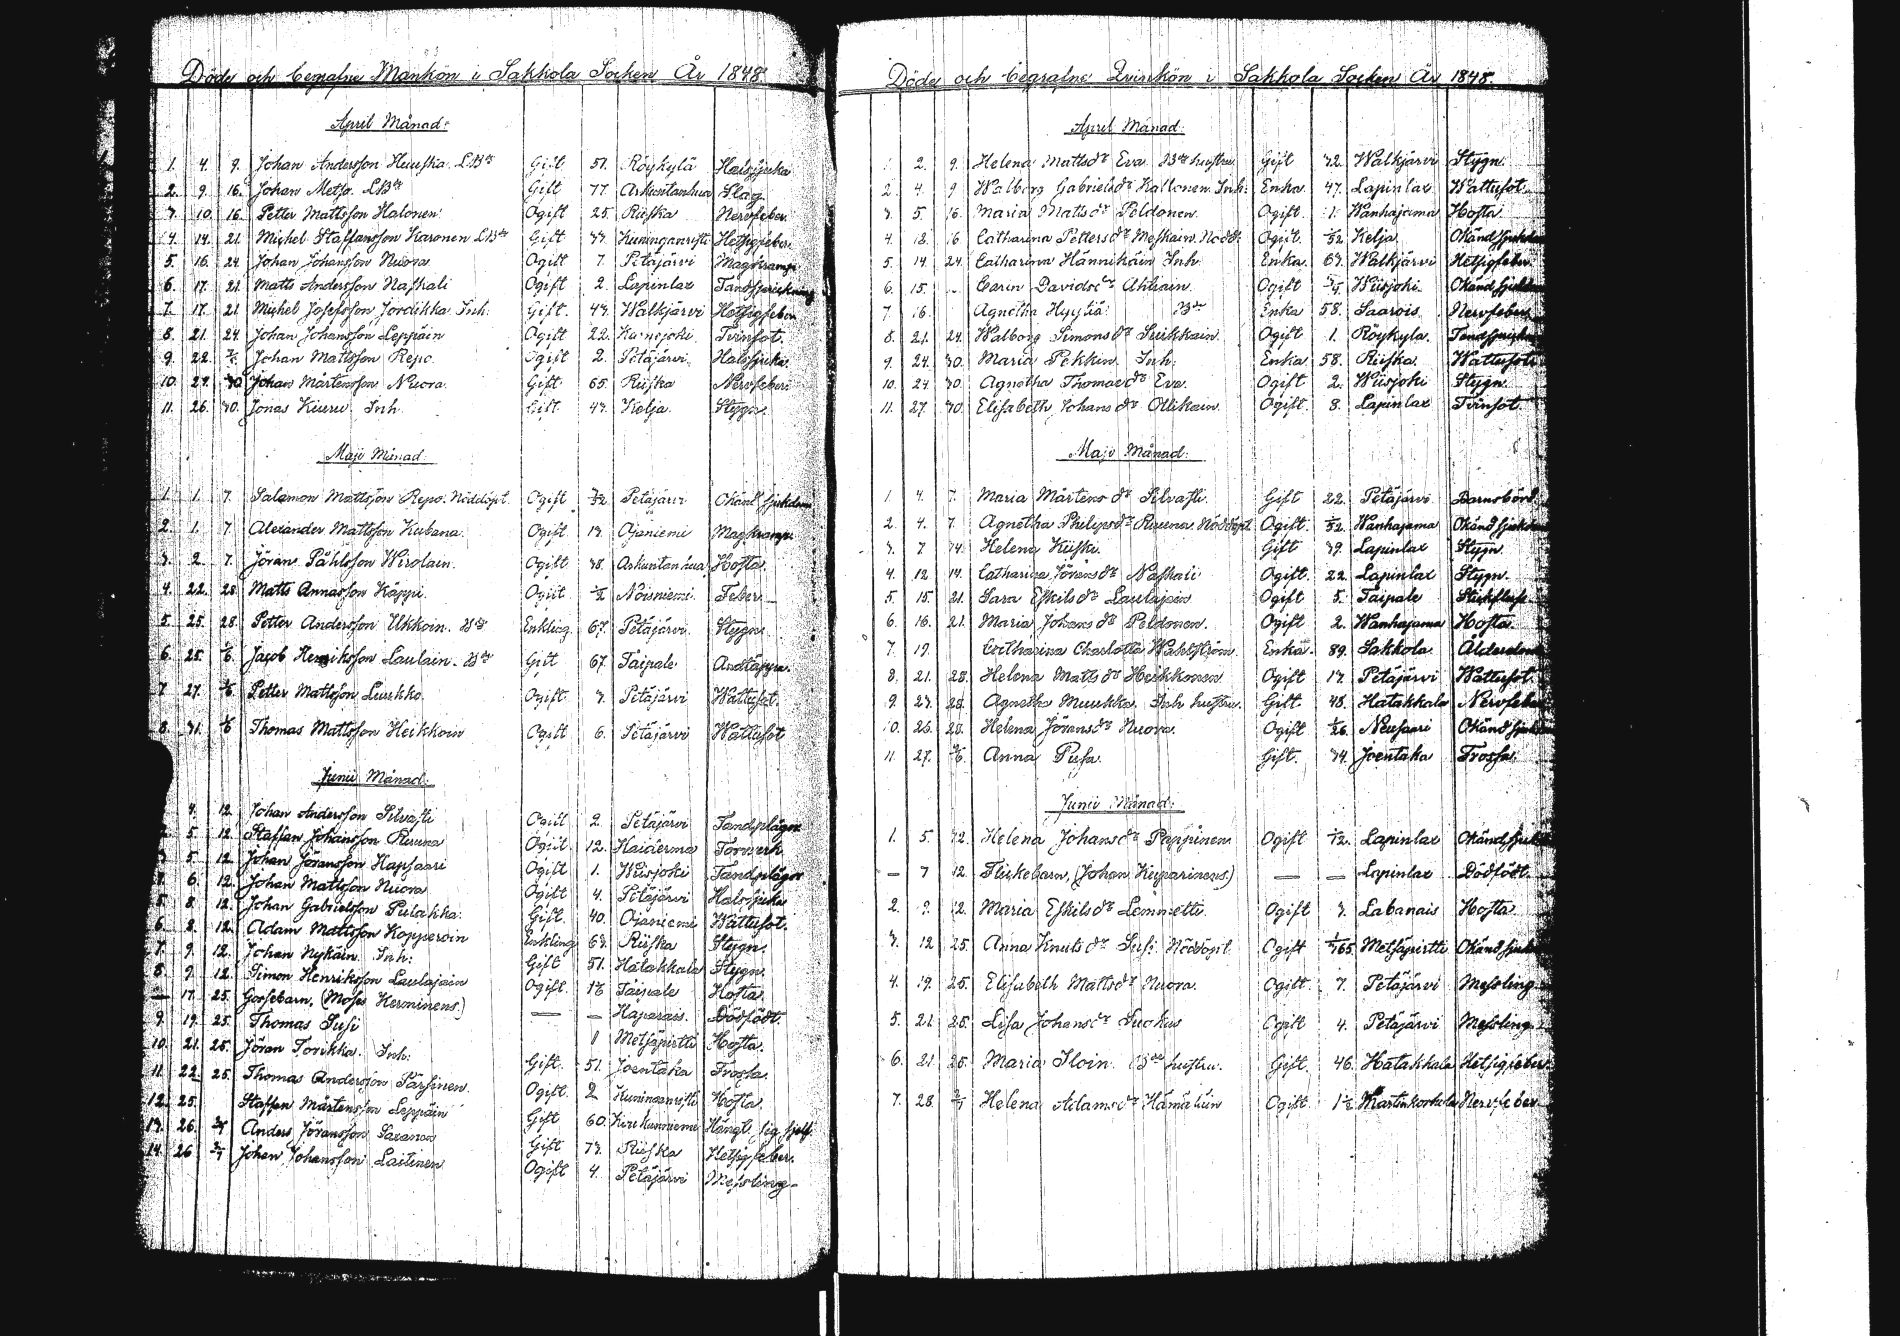 Döde och begrafne Mankön i Sakkola Socken År 1848.
April Månad:
1. 4. 9. Johan Andersson Huuska. LBde Gift 51. Röykylä Halssjuka
2. 9. 16. Johan Metso. LBde Gift 77. Arkuntanhua Slag
3. 10. 16. Petter Mattsson Halonen Ogift 25. Riiska Nervfeber.
4. 14. 21. Michel Staffansson Karonen LBde Gift Kuninganristi Hetsigfeber.
5. 16. 24. Johan Johansson Nuora Ogift 7. Petäjärvi Magkramp
6. 17. 21. Matts Andersson Naskali Ogift 2. Lapinlax Tandsprickning
7. 17. 21. Michel Josefsson Jordikka Inh. Gift. Walkjärvi Hetsigfeber
8. 21. 24. Johan Johansson Leppäin Ogift 22. Tvinsot.
9. 22. Johan Mattsson Repo. Ogift 2. Petäjärvi Halssjuka.
10. 24. 30. Johan Mårtensson Nuora. Gift 65. Riiska Nervfeber
11. 26. 30. Jonas Kiuru Inh. Gift. Kelja. Stygn.
Maji Månad.
1. 1. 7. Salomon Mattsson Repo. Nöddöpt. Ogift Petäjärvi Okänd sjukdom
2. 1. 7. Alexander Mattsson Kubana. Ogift 13. Ojaniemi Magkramp.
3. 2. 7. Jöran Påhlsson Wirolain. Ogift 38. Arkuntanhua Hosta.
4. 22. 28. Matts Annasson Käppi. Ogift ½ Noisniemi Feber
5. 25. 28. Petter Andersson Ukkoin. Bde Enkling 67. Petäjärvi. Stygn.
6. 25. Jacob Henriksson Laulain. Bde Gift 67. Taipale Andtäppa.
7. 27. Petter Mattsson Luukko. Ogift 3. Petäjärvi Wattusot.
8. 31. Thomas Mattsson Heikkoin Ogift 6. Petäjärvi Wattusot
Junii Månad:
4. 12. Johan Andersson Silvasti Ogift 2. Petäjärvi Tandplågor
5. 12. Staffan Johansson Ruuna Ogift 12. Haiderma Torverk
5. 12. Johan Jöransson Hapsaari Ogift 1. Wiisjoki Tandplågor
6. 12. Johan Mattsson Nuora Ogift 4. Petäjärvi Halssjuka
5. 8. 12. Johan Gabrielsson Pulakka. Gift. 40. Ojaniemi Wattusot.
6. 8. 12. Adam Mattsson Kopperoin Enkling 63. Riiska Stygn.
7. 9. 12. Johan Nykäin. Inh: Gift 51. Hatakkala Stygn.
8. 9. 12. Simon Henriksson Laulajain Ogift. Taipale Hosta
— 17. 25. Gossebarn, (Moses Kerminens.) — — Haparais. Dödfödt.
9. 19. 25. Thomas Susi 1 Metsäpirtti Hosta.
10. 21. 25. Jöran Torikka. Inh. Gift. 51. Joentaka Trossa.
11. 22. 25. Thomas Andersson Pärsinen. Ogift. 2 Kuninganristi Hosta.
12. 25. Staffan Mårtensson Leppäin Gift 60. Kirikunniemi Hängt sig sjelf
13. 26. Anders Jöransson Saxanen Gift 73. Riiska Hetsigfeber.
14. 26 Johan Johansson Laitinen Ogift 4. Petäjärvi Messling
Döde och begrafne Qvinkön i Sakkola Socken År 1848.
April Månad:
2. 9. Helena Mattsdr Eva Bde hustru. Gift Walkjärvi Stygn.
2. 4. 9 Walborg Gabrielsdr Kallonen. Inh: Enka. 47. Lapinlax Wattusot.
3. 5. 16. Maria Mattsdr Peldonen Ogift. 1. Wanhajama Hosta.
4. 16 Catharina Pettersdr Meskain. Nödd: Ogift. Kelja. Okänd sjukdom
5. 14. 24. Catharina Hännikäin Inh. Enka. 63. Walkjärvi Hetsigfeber.
6. 15 Carin Davidsdr Ahtiain. Ogift Wiisjoki Okänd sjukdom
7. 16. Agnetha Hyytiä Bde Enka 58. Saarois Nervfeber
8. 21. 24. Walborg Simonsdr Suikkain Ogift 1. Röykylä. Tandsprickn
9. 24. 30 Maria Pekkin Inh. Enka 58. Riiska Wattusot
10. 24 30. Agnetha Thomaedr Eva. Ogift 2. Wiisjoki Stygn
11. 27. 30. Elisabeth Johansdr Ollikain. Ogift. 8. Lapinlax Tvinsot
Maji Månad:
1 4. 7. Maria Mårtensdr Silvasti. Gift 22. Petäjärvi Barnsbörd
2. 4. 7. Agnetha Philipsdr Ruuna Nöddöpt. Ogift. Wanhajama Okänd sjukdom
3. 7 14. Helena Kiiski Gift 39. Lapinlax Stygn.
4. 12 14. Catharina Jöransdr Naskali Ogift. 22. Lapinlax Stygn.
5. 15. 21. Sara Eskilsdr Laulajain Ogift 5. Taipale
6. 16. 21. Maria Johansdr Peldonen. Ogift 2. Wanhajama Hosta.
7. 19. Catharina Charlotta Wahlström Enka. 89. Sakkola Ålderdom
8. 21. 28. Helena Mattsdr Heikkonen Ogift 13. Petäjärvi Wattusot.
9. 23. 28. Agnetha Muukka Inh. hustru. Gift. 48. Hatakkala Nervfeber
10. 26. 28. Helena Jöransdr Nuora. Ogift Neusaari Okänd sjukdom
11. 27. Anna Pusa. Gift. 34. Joentaka Trossa.
Junii Månad:
1. 5. 12. Helena Johansdr Pappinen Ogift Lapinlax Okänd sjukd
— 7 12. Flickebarn, (Johan Kiiparinens.) — — Lapinlax Dödfödt.
2. 9. 12. Maria Eskilsdr Lemmetti. Ogift 3. Labanais Hosta
3. 12 25. Anna Knutsdr Susi Nöddöpt. Ogift Metsäpirtti Okänd sjukd
4. 19. 25. Elisabeth Mattsdr Nuora. Ogift 7. Petäjärvi Messling
5. 21 25. Lisa Johansdr Suokas Ogift 4. Petäjärvi Messling
6. 21 25. Maria Iloin Bde hustru. Gift. 46. Hatakkala Hetsigfeber.
7. 28. Helena Adamsdr Hämäläin Ogift. 1½ Nervfeber